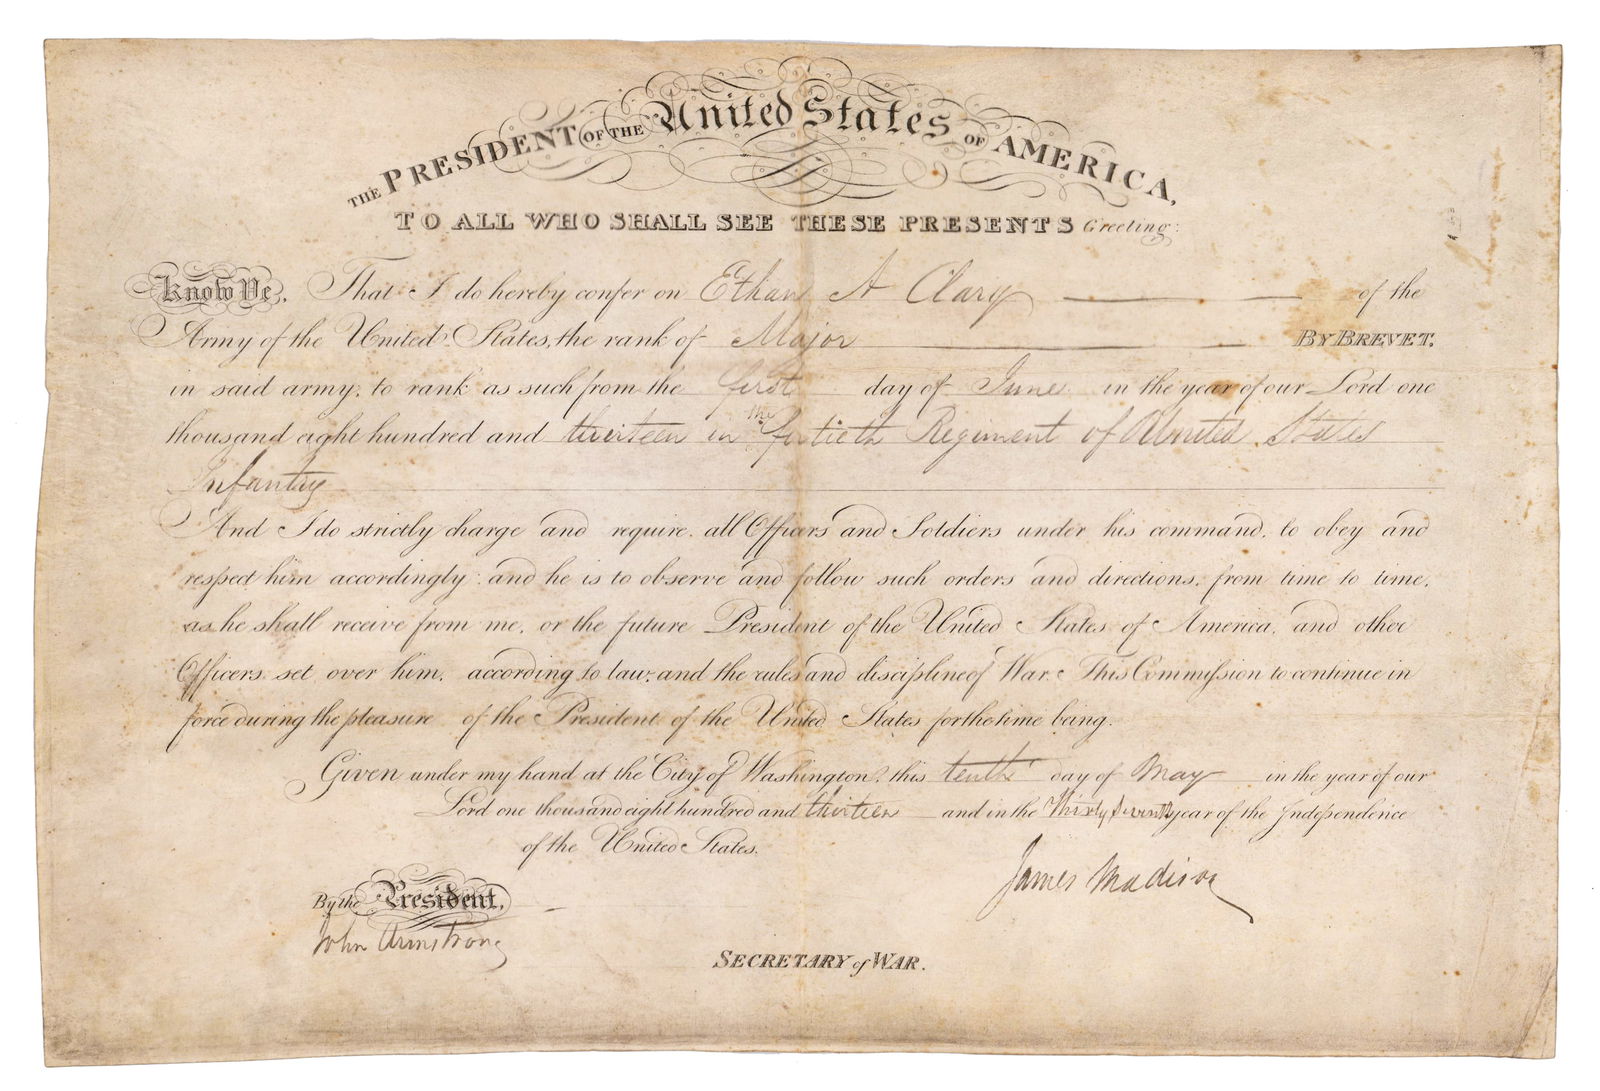 THE PRESIDENT OF THE United States OF AMERICA,
TO ALL WHO SHALL SEE THESE PRESENTS Greeting:
Know Ye, That I do hereby confer on Ethan A Clary of the
Army of the United States, the rank of Major BY BREVET,
in said army, to rank as such from the first day of June in the year of our Lord one
thousand eight hundred and thirteen in the fortieth Regiment of United States
Infantry
And I do strictly charge and require, all Officers and Soldiers under his command, to obey and
respect him accordingly: and he is to observe and follow such orders and directions, from time to time,
as he shall receive from me, or the future President of the United States of America, and other
Officers set over him, according to law, and the rules and discipline of War. This Commission to continue in
force during the pleasure of the President of the United States for the time being.
Given under my hand at the City of Washington, this tenth day of May in the year of our
Lord one thousand eight hundred and thirteen and in the Thirty Seventh year of the Independence
of the United States.
James Madison
By the President,
John Armstrong
SECRETARY of WAR.